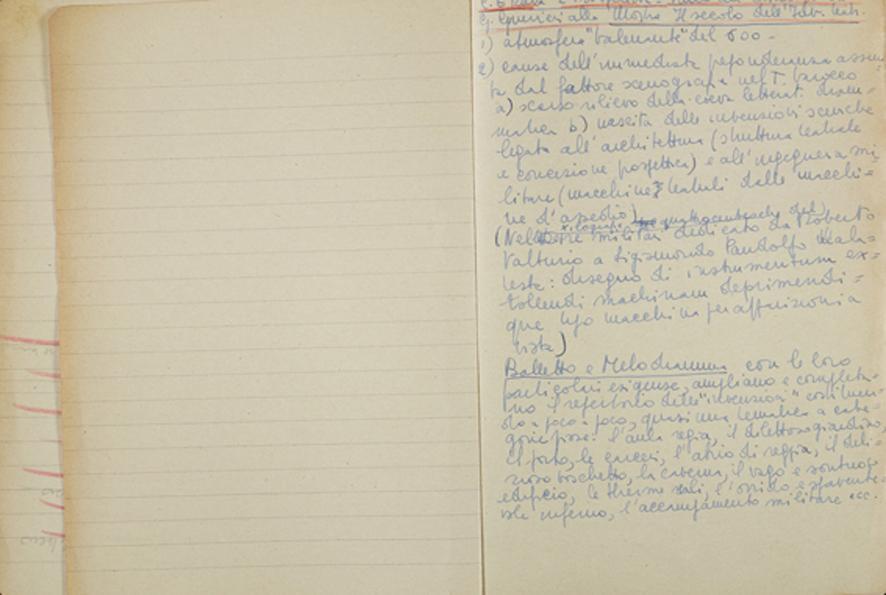 G. Guerrieri alla Mostra Il secolo dell'Inv. teatr.
1) atmosfera "balenante" del 600 -
2) cause dell'immediata preponderanza assun=
ta dal fattore scenografia nel T. barocco
a) scarso rilievo della coeva letterat. dram=
matica b) nascita delle invenzioni sceniche
legata all'architettura (struttura teatrale
e concezione prospettica) e all'ingegneria mi=
litare (macchine teatrali dalle macchi=
ne d'assedio)
quattrocentesche del
(Nel militari dedicato da Roberto
Valturio a Sigismondo Pandolfo Mala=
testa: disegno di instrumentum ex=
tollendi machinam deprimendi=
que tipo macchina per apparizioni a
vista)
Balletto e Melodramma con le loro
particolari esigenze, ampliano e completa=
no il repertorio delle "invenzioni" costituen=
do a poco a poco, quasi una tematica a cate=
gorie fisse: l'aula regia, il dilettoso giardino,
il porto, le carceri, l'atrio di reggia, il deli=
zioso boschetto, la caverna, il vago e sontuoso
edificio, le therme reali, l'orrido e spavente=
vole inferno, l'accampamento militare ecc.